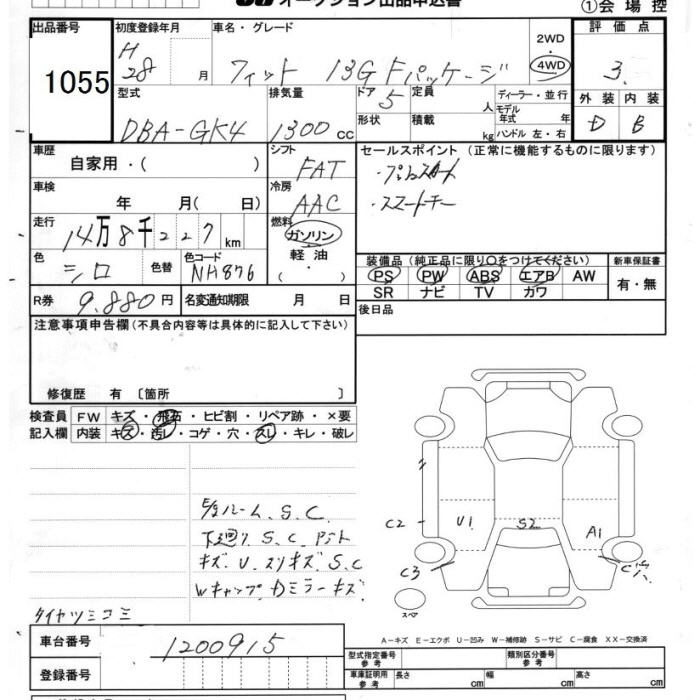 オークション出品申込書
①会場控
出品番号 初度登録年月 車名・グレード 評価点
1055 H28 月 フィット 13G Fパッケージ 2WD 4WD 3.
型式 排気量 ドア 定員 ディーラー・並行 外装 内装
DBA-GK4 1300 cc 5 人 モデル年式 年 D B
形状 積載 kg ハンドル 左・右
車歴 シフト セールスポイント(正常に機能するものに限ります)
自家用・( ) FAT ・プッシュスタート
車検 冷房 ・スマートキー
年 月( 日) AAC
走行 燃料
14万8千227km ガソリン
色 色替 色コード 軽油 装備品(純正品に限り○をつけてください) 新車保証書
シロ NH876 ( ・ ) PS PW ABS エアB AW 有・無
SR ナビ TV カワ
R券 9.880円 名変通知期限 月 日 後日品
注意事項申告欄(不具合内容等は具体的に記入して下さい)
修復歴 有〔箇所 〕
検査員 FW キズ・飛石・ヒビ割・リペア跡・×要
記入欄 内装 キズ・汚レ・コゲ・穴・スレ・キレ・破レ
E/gルーム S.C
C2 U1 S2 A1
下廻り S.C
キズ.U.スリキズ.S.C
C3
Wキャップ Dミラーキズ
スペア
タイヤツミコミ
A-キズ E-エクボ U-凹み W-補修跡 S-サビ C-腐食 XX-交換済
車台番号 1200915
型式指定番号 参考 類別区分番号 参考
登録番号 車庫証明用 参考 長さ cm 幅 cm 高さ cm